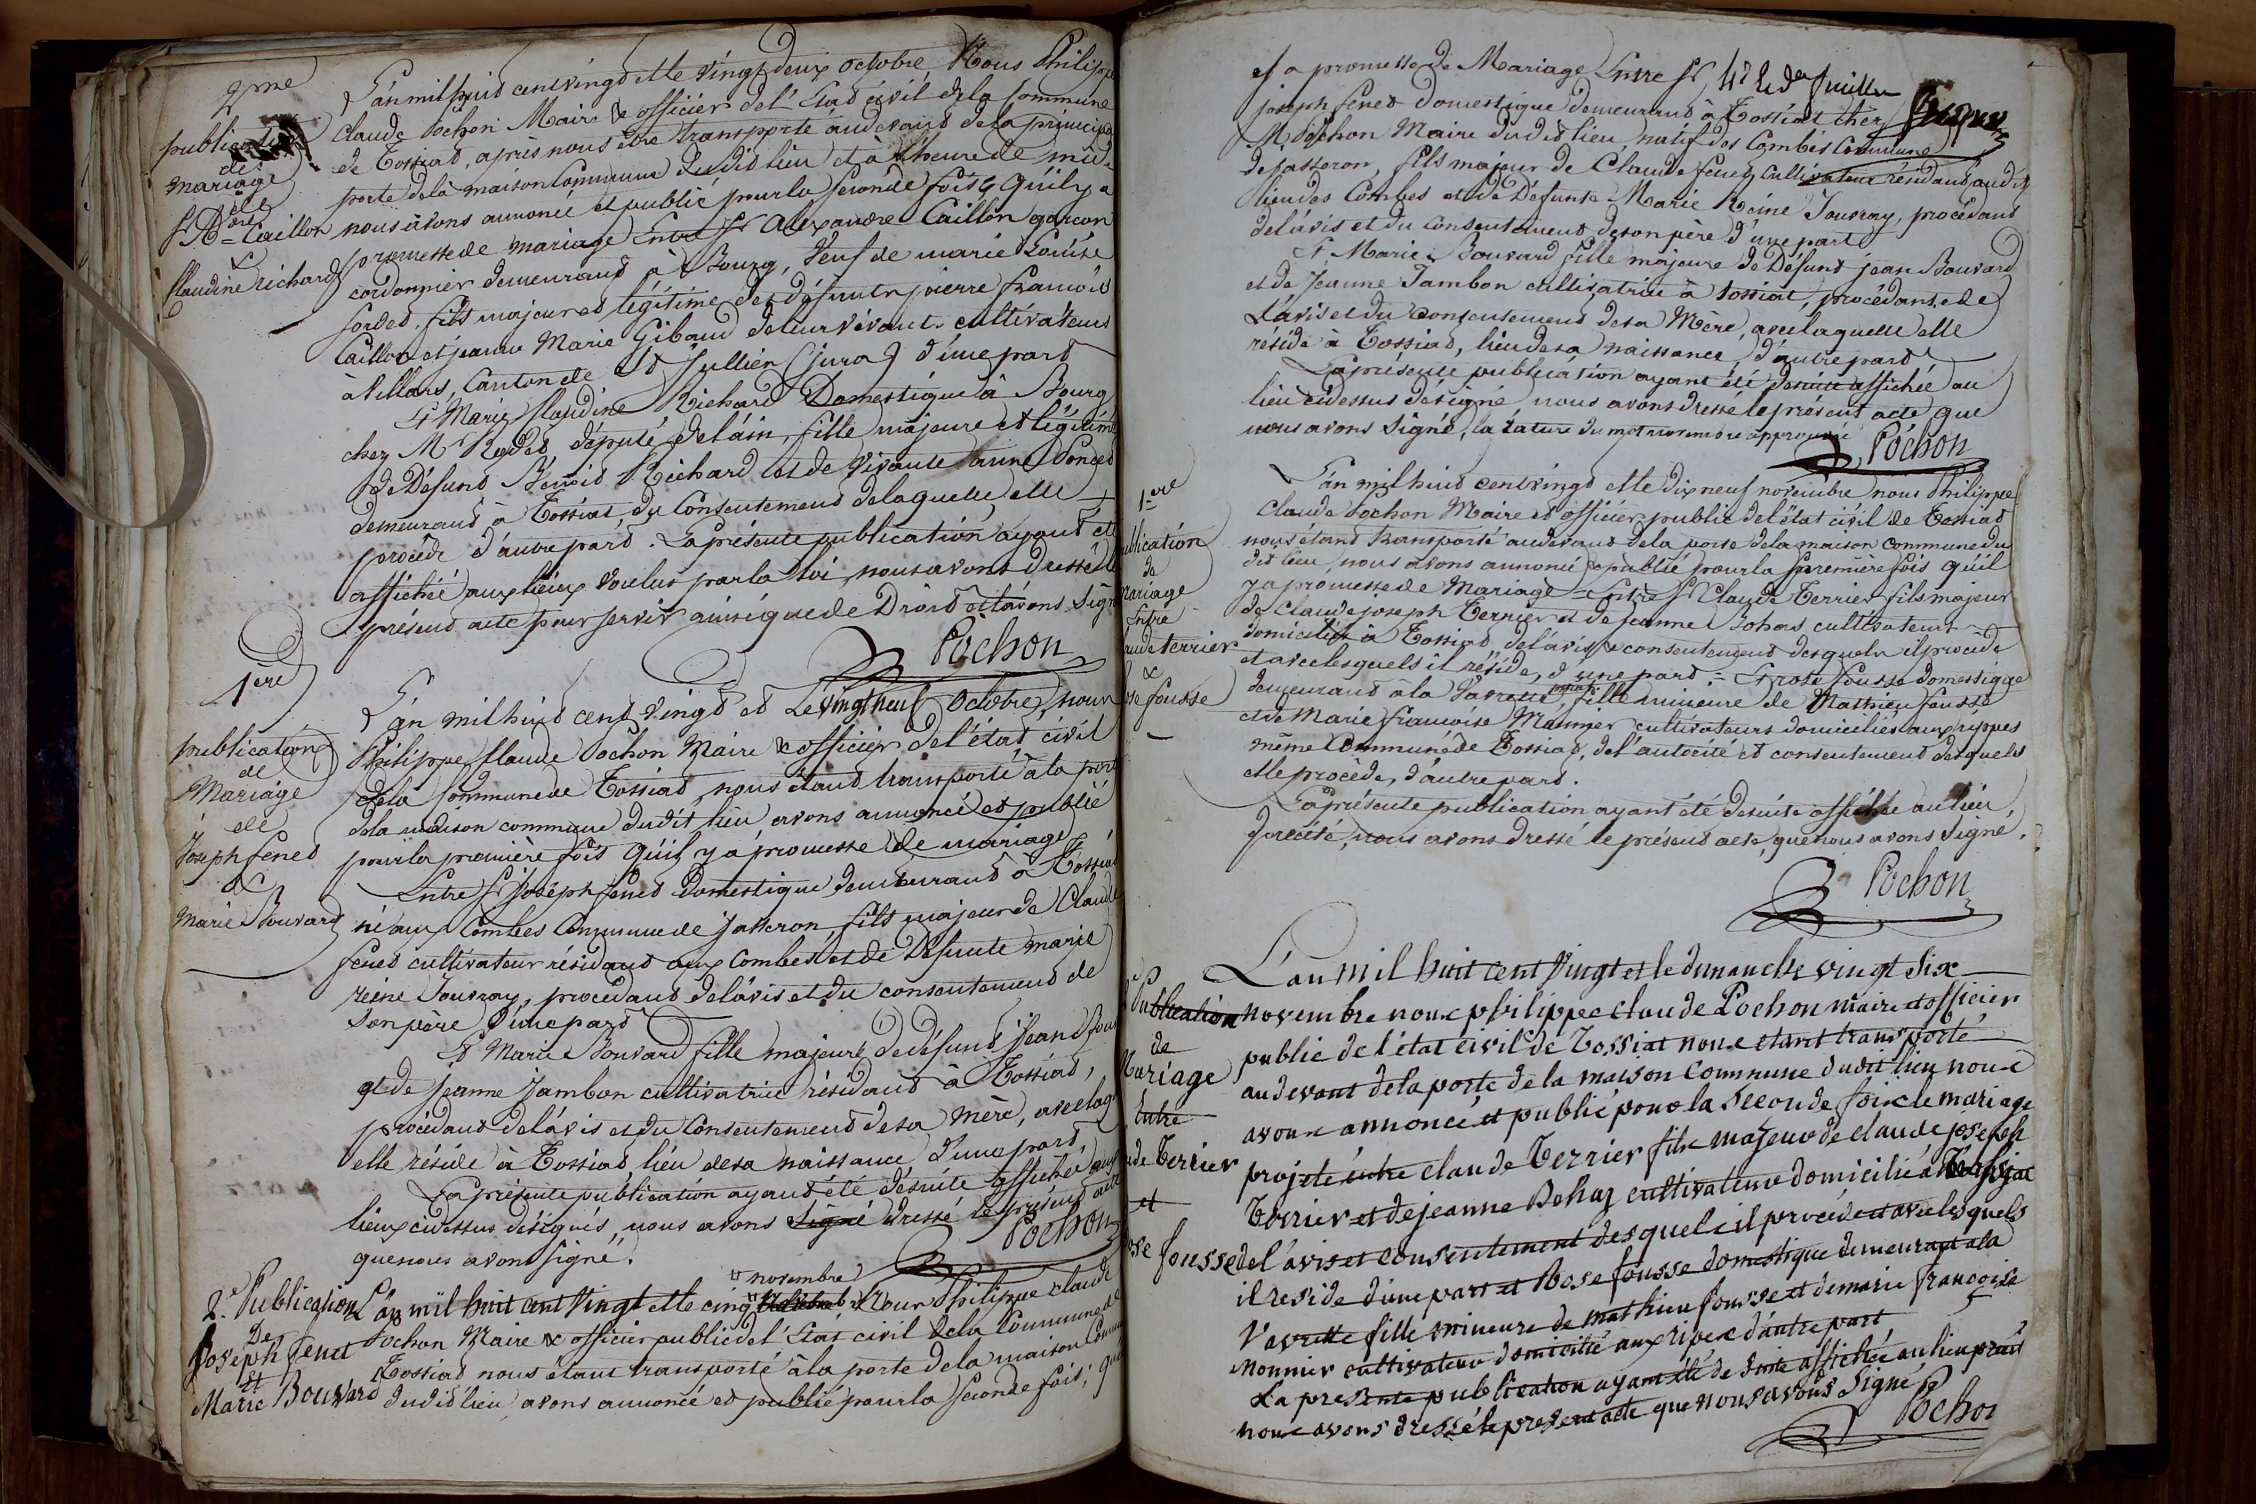 2me
publication
de
mariage
de
Sr Adre Caillon
&
Claudine richard
L'an mil huit cent vingt et le vingt deux octobre Nous Philippe
Claude Pochon Maire & officier de l'Etat civil de la Commune
de Tossiat, après nous être transporté au devant de la principale
porte de la maison Commune dudit lieu et à l'heure de midi
nous avons annoncé et publié pour la seconde fois qu'il y a
promesse de mariage Entre Sr Alexandre Caillon garçon
cordonnier demeurant à Bourg, Veuf de marie Louise
fils majeur et légitime de défunts pierre François
Caillon et jeanne Marie Gibaud de leur vivant cultivateurs
à Villars Canton de St Jullien (jura) d'une part
Et Marie Claudine Richard Domestique à Bourg
chez Mr Rodet député de l'ain, fille majeure et légitime
de Défunt Benoit Richard et de vivante anne Poncet
demeurant à Tossiat du Consentement de laquelle elle
procède d'autre part. La présente publication ayant été
affichée aux lieux voulus par la loi, nous avons dressé le
présent acte pour servir ainsi que de Droit et avons Signé
Pochon
1ere
publication
de
Mariage
de
Joseph fenet
&
Marie Bouvard
L'an mil huit cent vingt et Le vingt neuf octobre nous
Philippe Claude Pochon Maire & officier de l'état civil
de la Commune de Tossiat, nous étant transporté à la porte
de la maison commune dudit lieu avons annoncé et publié
pour la première fois qu'il y a promesse de mariage
Entre Sr Joseph fenet Domestique demeurant à Tossiat
né aux Combes Commune de jasseron, fils majeur de Claude
fenet cultivateur résidant aux Combes et de Défunte marie
reine Jouvray, procédant de l'avis et du consentement de
son père d'une part
Et Marie Bouvard fille majeure de défunt Jean Bouv
et de Jeanne Jambon cultivatrice résidant à Tossiat,
procédant de l'avis et du Consentement de sa mère, avec laq
elle réside à Tossiat lieu de sa naissance d'une part,
La présente publication ayant été de suite affichée aux
lieux cidessus désignés, nous avons Signé dressé le présent acte
que nous avons signé.
Pochon
2e Publication
De
Joseph fenet
Et
Marie Bouvard
novembre
L'an mil huit cent Vingt et le cinq octobre Nous Philippe claude
Pochon Maire & officier public de l'Etat civil de la Commune de
Tossiat nous étant transporté à la porte de la maison Commu
dudit lieu, avons annoncé et publié pour la Seconde fois, qu'il
4e & der feuillet
et a promesse de Mariage Entre Sr
joseph fenet domestique demeurant à Tossiat chez
Mr Pochon Maire dudit lieu, natif des Combes Commune
de jasseron, fils majeur de Claude fenet Cultivateur résidant audit
lieu des Combes et de Défunte Marie Reine Jouvray, procédant
de l'avis et du consentement de son père d'une part
Et Marie Bouvard fille majeure de Défunt jean Bouvard
et de Jeanne Jambon cultivatrice à Tossiat, procédant de
L'avis et du consentement de sa Mère, avec laquelle elle
réside à Tossiat, lieu de sa naissance, d'autre part
La présente publication ayant été de suite affichée au
lieu cidessus désigné nous avons dressé le présent acte que
nous avons Signé, la rature du mot novembre approuvé
Pochon
1ere
ublication
de
ariage
Entre
aude terrier
&
se fousse
L'an mil huit cent vingt et le dix neuf novembre nous Philippe
Claude Pochon Maire et officier public de l'état civil de Tossiat
nous étant transporté au devant de la porte de la maison commune du
dit lieu, nous avons annoncé & publié pour la première fois qu'il
y a promesse de Mariage Entre Sr Claude Terrier fils majeur
de Claude joseph Terrier et de jeanne Bohas cultivateurs
domiciliés à Tossiat, de l'avis & consentement desquels il procède
et avec lesquels il réside, d'une part = Et rose fousse domestique
demeurant à la Vavrette fille mineure de Mathieu fousse
et de Marie françoise Monnier cultivateurs domiciliés aux rippes
même Commune de Tossiat, de l'autorité et consentement desquels
elle procède, d'autre part.
La présente publication ayant été de suite affichée au lieu
précité, nous avons dressé le présent acte, que nous avons Signé.
Pochon
2e
Publication
de
Mariage
Entre
de Terrier
et
ose fousse
L'an mil huit cent Vingt et le dimanche vingt Six
novembre nous philippe claude Pochon maire et officier
public de l'état civil de Tossiat nous etant transporté
au devant de la porte de la maison Commune dudit lieu nous
avons annoncé et publié pour la Seconde fois le mariage
projeté entre claude Terrier fils majeur de claude joseph
Terrier et de jeanne Bohaz cultivateurs domicilié à Tossiat
de l'avis et consentement desquels il procède et avec lesquels
il reside d'une part et Rose fousse domestique demeurant a la
Vavrette fille mineure de mathieu fousse et de marie françoise
Monnier cultivateurs domicilié aux ripes d'autre part
La presente publication ayant été de suite affichée au lieu précité
nous avons dressé le present acte que nous avons Signé
Pochon